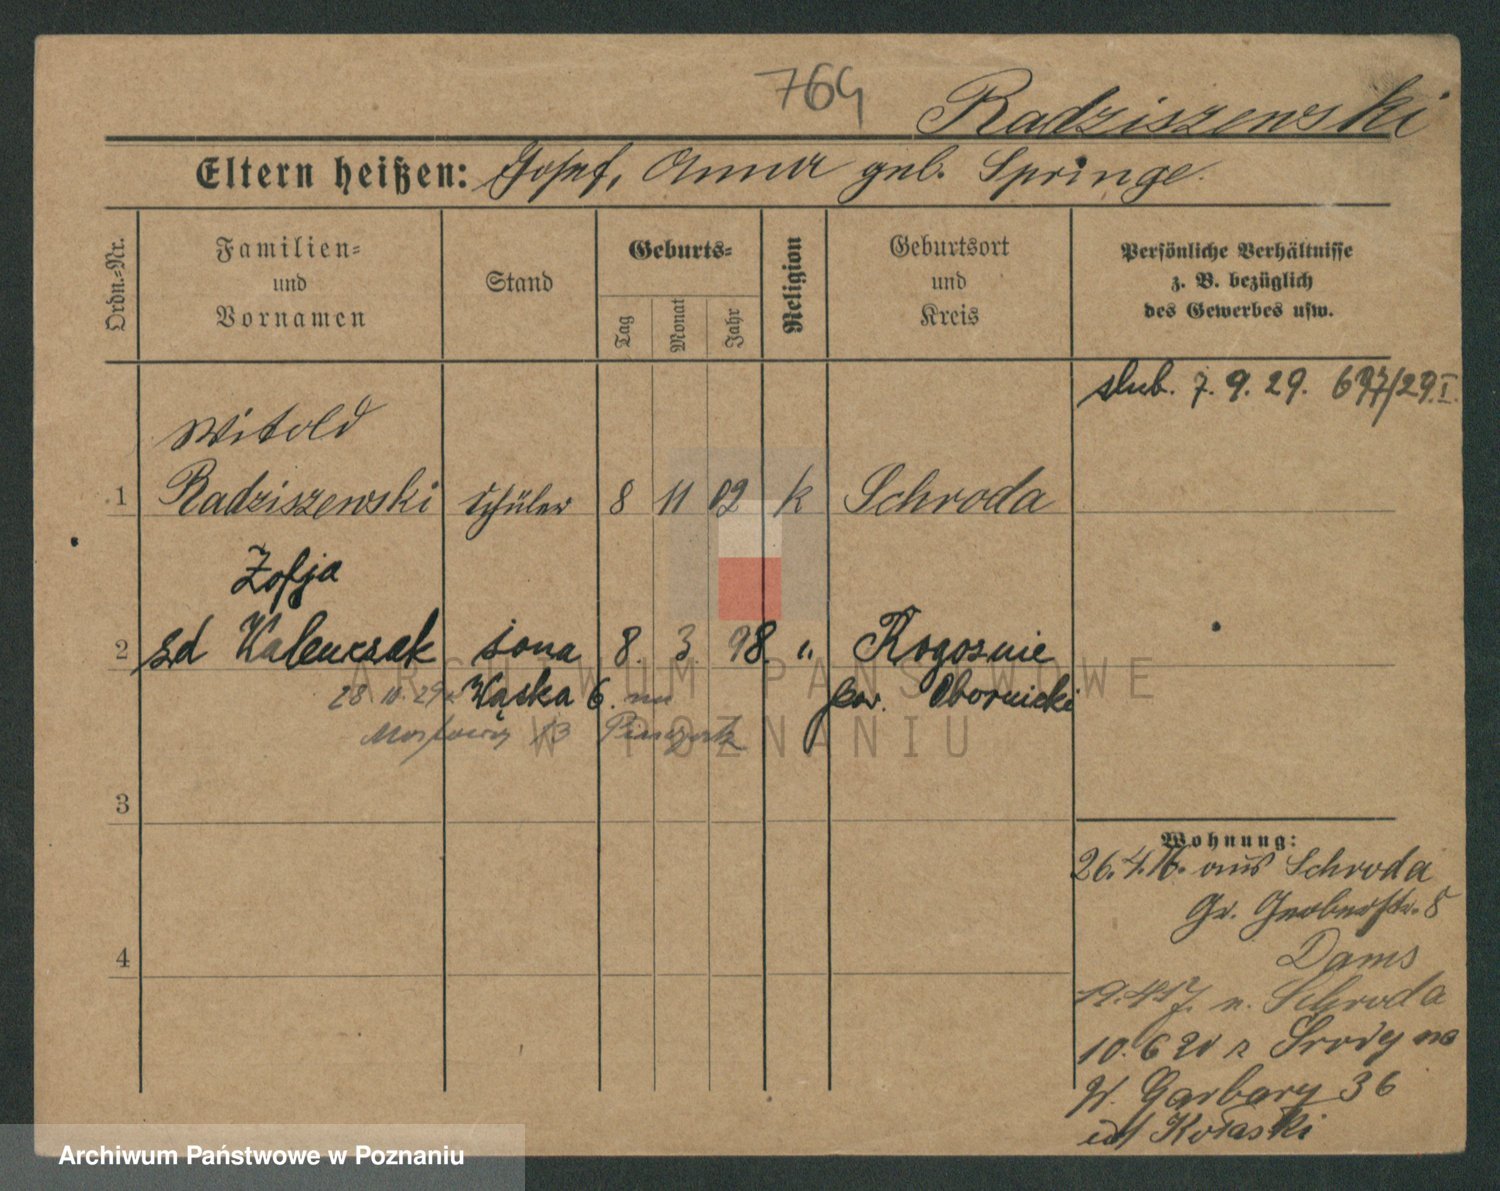 764
Radziszewski
Eltern heißen: Josef, Anna geb. Springe.
Ordn.=Nr.
Familien=
und
Vornamen
Stand
Geburts=
Tag
Monat
Jahr
Religion
Geburtsort
und
Kreis
Persönliche Verhältnisse
z. B. bezüglich
des Gewerbes usw.
ślub. 7. 9. 29. 697/29.I.
Witold
1 Radziszewski Schüler 8 11 02 k Schroda
Zofja
2 zd Walenczak żona 8. 3 98. ". Rogoznie
28.10.29 Wąska 6. pow. Obornicki
13
3
4
Wohnung:
26.4.16. aus Schroda
Gr. Gerberstr. 8
Dams
19.4.17. n. Schroda
10.6 20 z Środy na
W. Garbary 36
Kołaski
ARCHIWUM PAŃSTWOWE
W POZNANIU
Archiwum Państwowe w Poznaniu